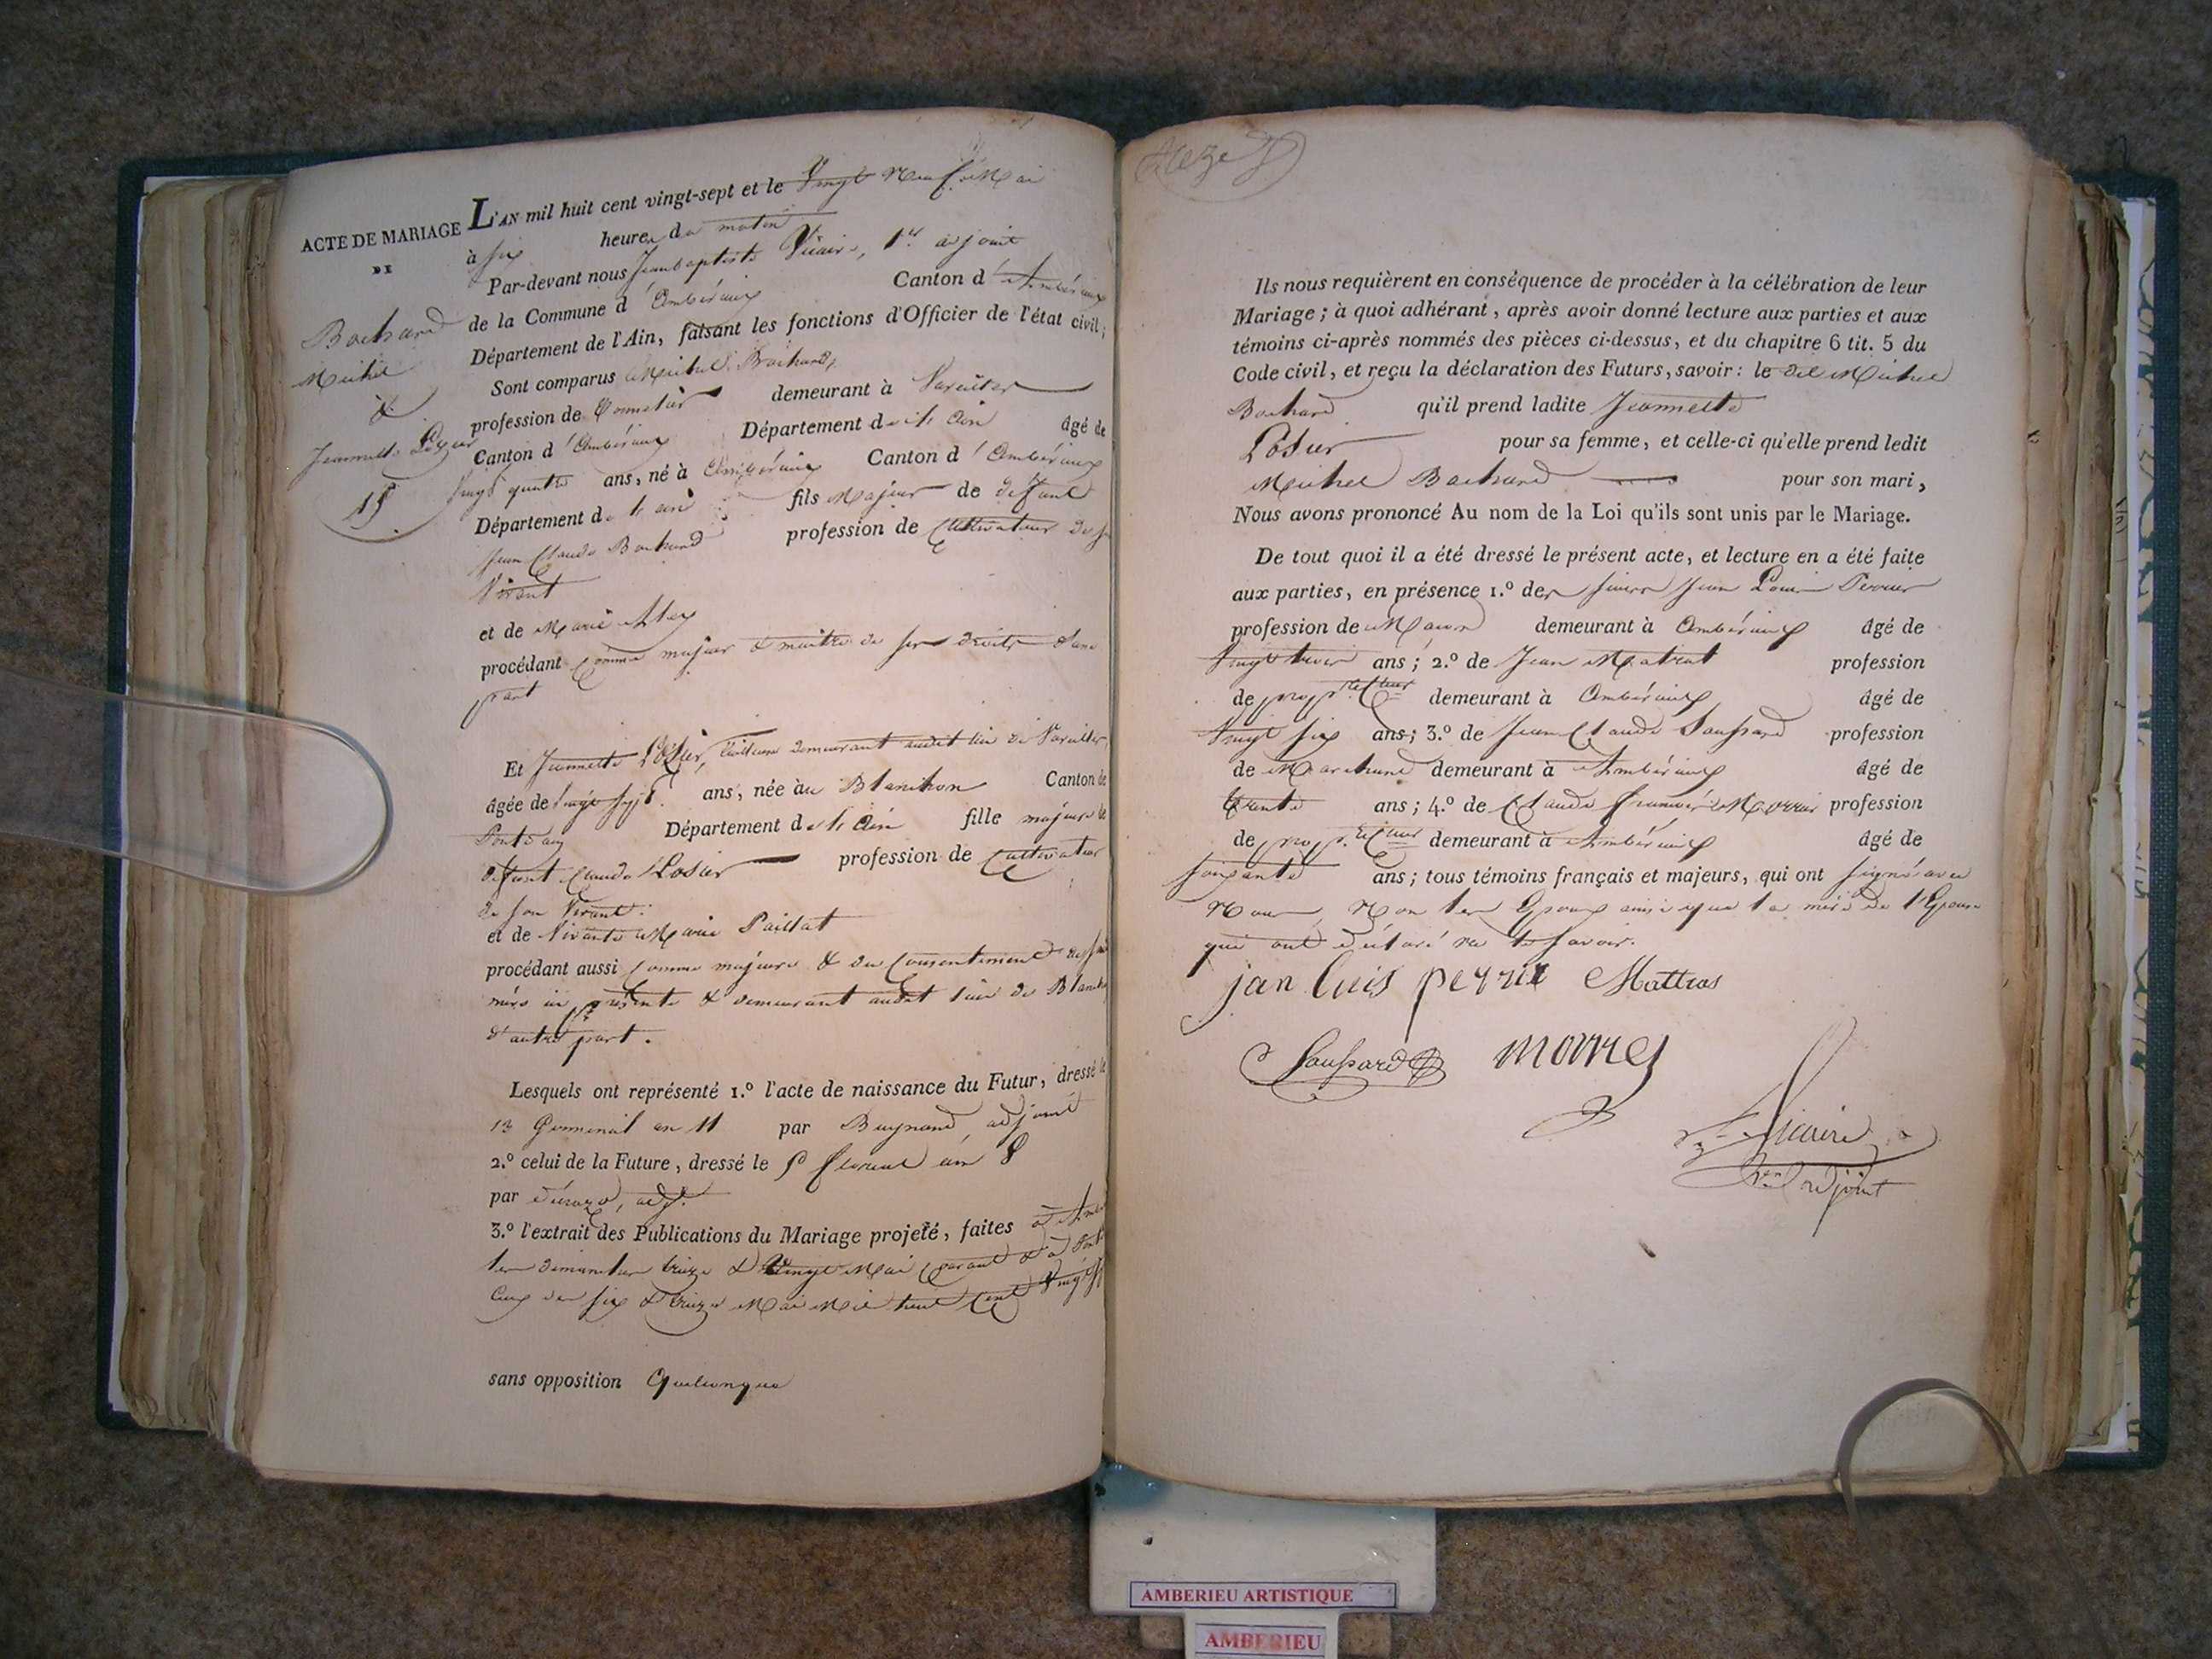 ACTE DE MARIAGE
DE
Bochard
Michel
&
Jeannette
15
L'AN mil huit cent vingt-sept et le Vingt Neuf Mai
à six heures du matin
Par-devant nous Jean baptiste Vicaire, 1er adjoint
de la Commune d'Ambérieux Canton d'Ambérieux
Département de l'Ain, faisant les fonctions d'Officier de l'état civil;
Sont comparus Michel Bochard,
profession de demeurant à Vareilles
Canton d'Ambérieux Département de l'Ain âgé de
Vingt quatre ans, né à Ambérieux Canton d'Ambérieux
Département de l'ain fils Majeur de defunt
Jean Claude Bochard profession de Cultivateur de s
Vivant
et de Marie
procédant Comme majeur & maitre de ses droits d'une
part
Et Jeannette demeurant audit lieu de Vareilles
âgée de Vingt sept ans, née au Blanchon Canton de
Pontdain Département de l'Ain fille majeure de
defunt Claude profession de Cultivateur
de son Vivant
et de Vivante Marie Paillat
procédant aussi Comme majeure & du Consentement de sad
mère ici présente & demeurant audit lieu de Blanch
d'autre part.
Lesquels ont représenté 1.º l'acte de naissance du Futur, dressé le
13 Germinal an 11 par adjoint
2.º celui de la Future, dressé le floréal an 8
par adj.
3.º l'extrait des Publications du Mariage projeté, faites à Amb
les dimanches treize & Vingt Mai Courant & à Pont
Ceux des six & treize Mai Mil huit Cent Vingt
sans opposition Quelconque
Ils nous requièrent en conséquence de procéder à la célébration de leur
Mariage; à quoi adhérant, après avoir donné lecture aux parties et aux
témoins ci-après nommés des pièces ci-dessus, et du chapitre 6 tit. 5 du
Code civil, et reçu la déclaration des Futurs, savoir: le dit Michel
Bochard qu'il prend ladite Jeannette
pour sa femme, et celle-ci qu'elle prend ledit
Michel Bochard pour son mari,
Nous avons prononcé Au nom de la Loi qu'ils sont unis par le Mariage.
De tout quoi il a été dressé le présent acte, et lecture en a été faite
aux parties, en présence 1.º des sieurs Jean Louis Perrier
profession de Maçon demeurant à Ambérieux âgé de
Vingt trois ans; 2.º de Jean profession
de demeurant à Ambérieux âgé de
Vingt six ans; 3.º de Jean Claude Saussard profession
de Marchand demeurant à Ambérieux âgé de
trente ans; 4.º de Claude profession
de demeurant à Ambérieux âgé de
soixante ans; tous témoins français et majeurs, qui ont signé avec
Nous, Non les Epoux ainsi que la mère de l'Epouse
qui ont déclaré ne le savoir.
jan luis Mattras
Saussard
Vicaire
adjoint
AMBERIEU ARTISTIQUE
AMBERIEU